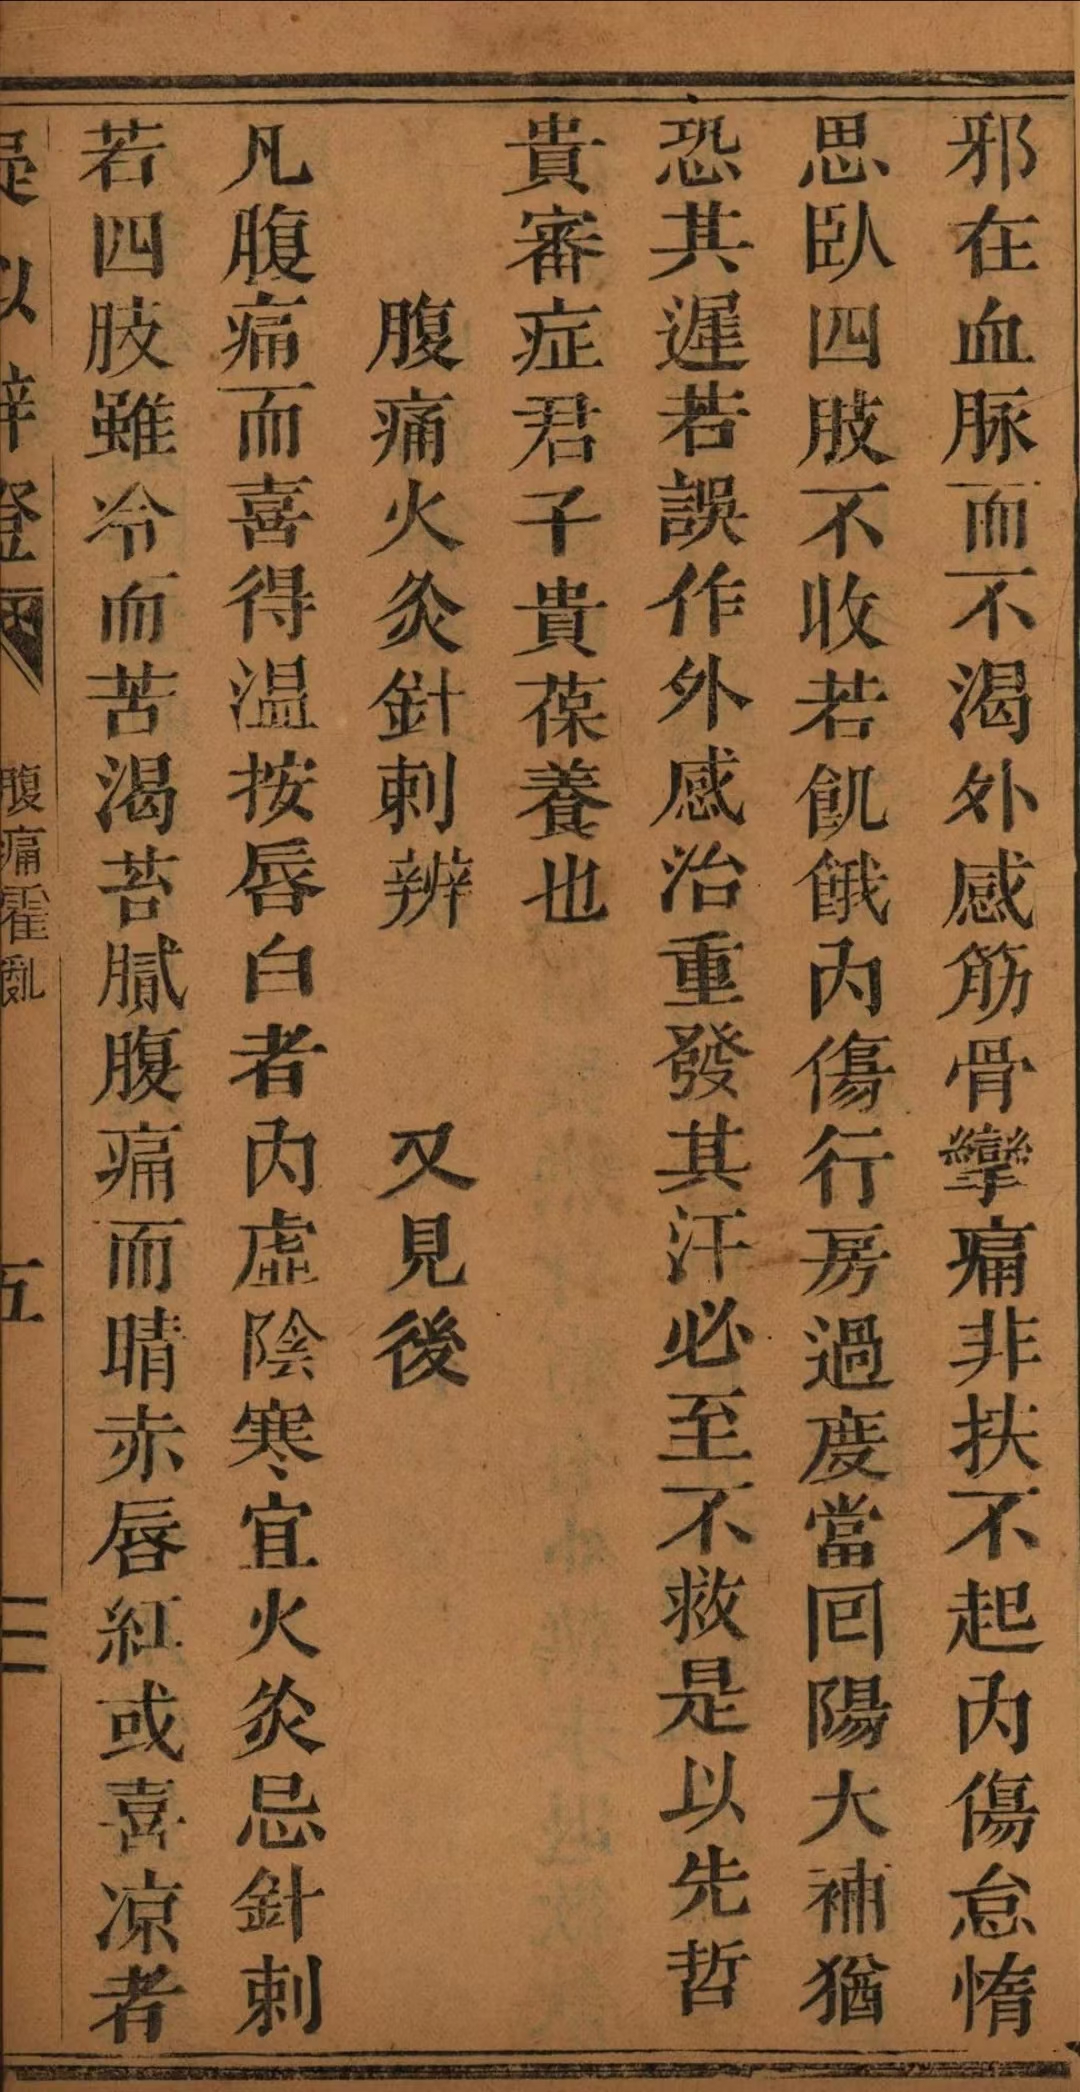 邪在血脉而不渴外感筋骨攣痛非挟不起內傷怠惰
思臥四肢不收若飢餓內傷行房過度當回陽大補猶
恐其遲若誤作外感治重發其汗必至不救是以先哲
貴審症君子貴葆養也
腹痛火灸針刺辨 又見後
凡腹痛而喜得温按唇白者內虛陰寒宜火灸忌針刺
若四肢雖冷而苦渴苔膩腹痛而晴赤唇紅或喜凉者
疑似辨證
腹痛霍亂
五